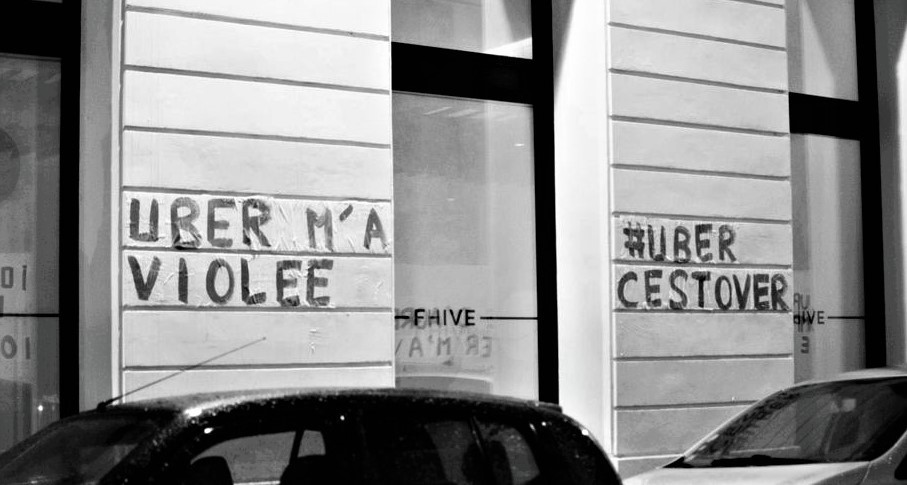 UBER M'A
VIOLEE
#UBER
CESTOVER
FHIVE